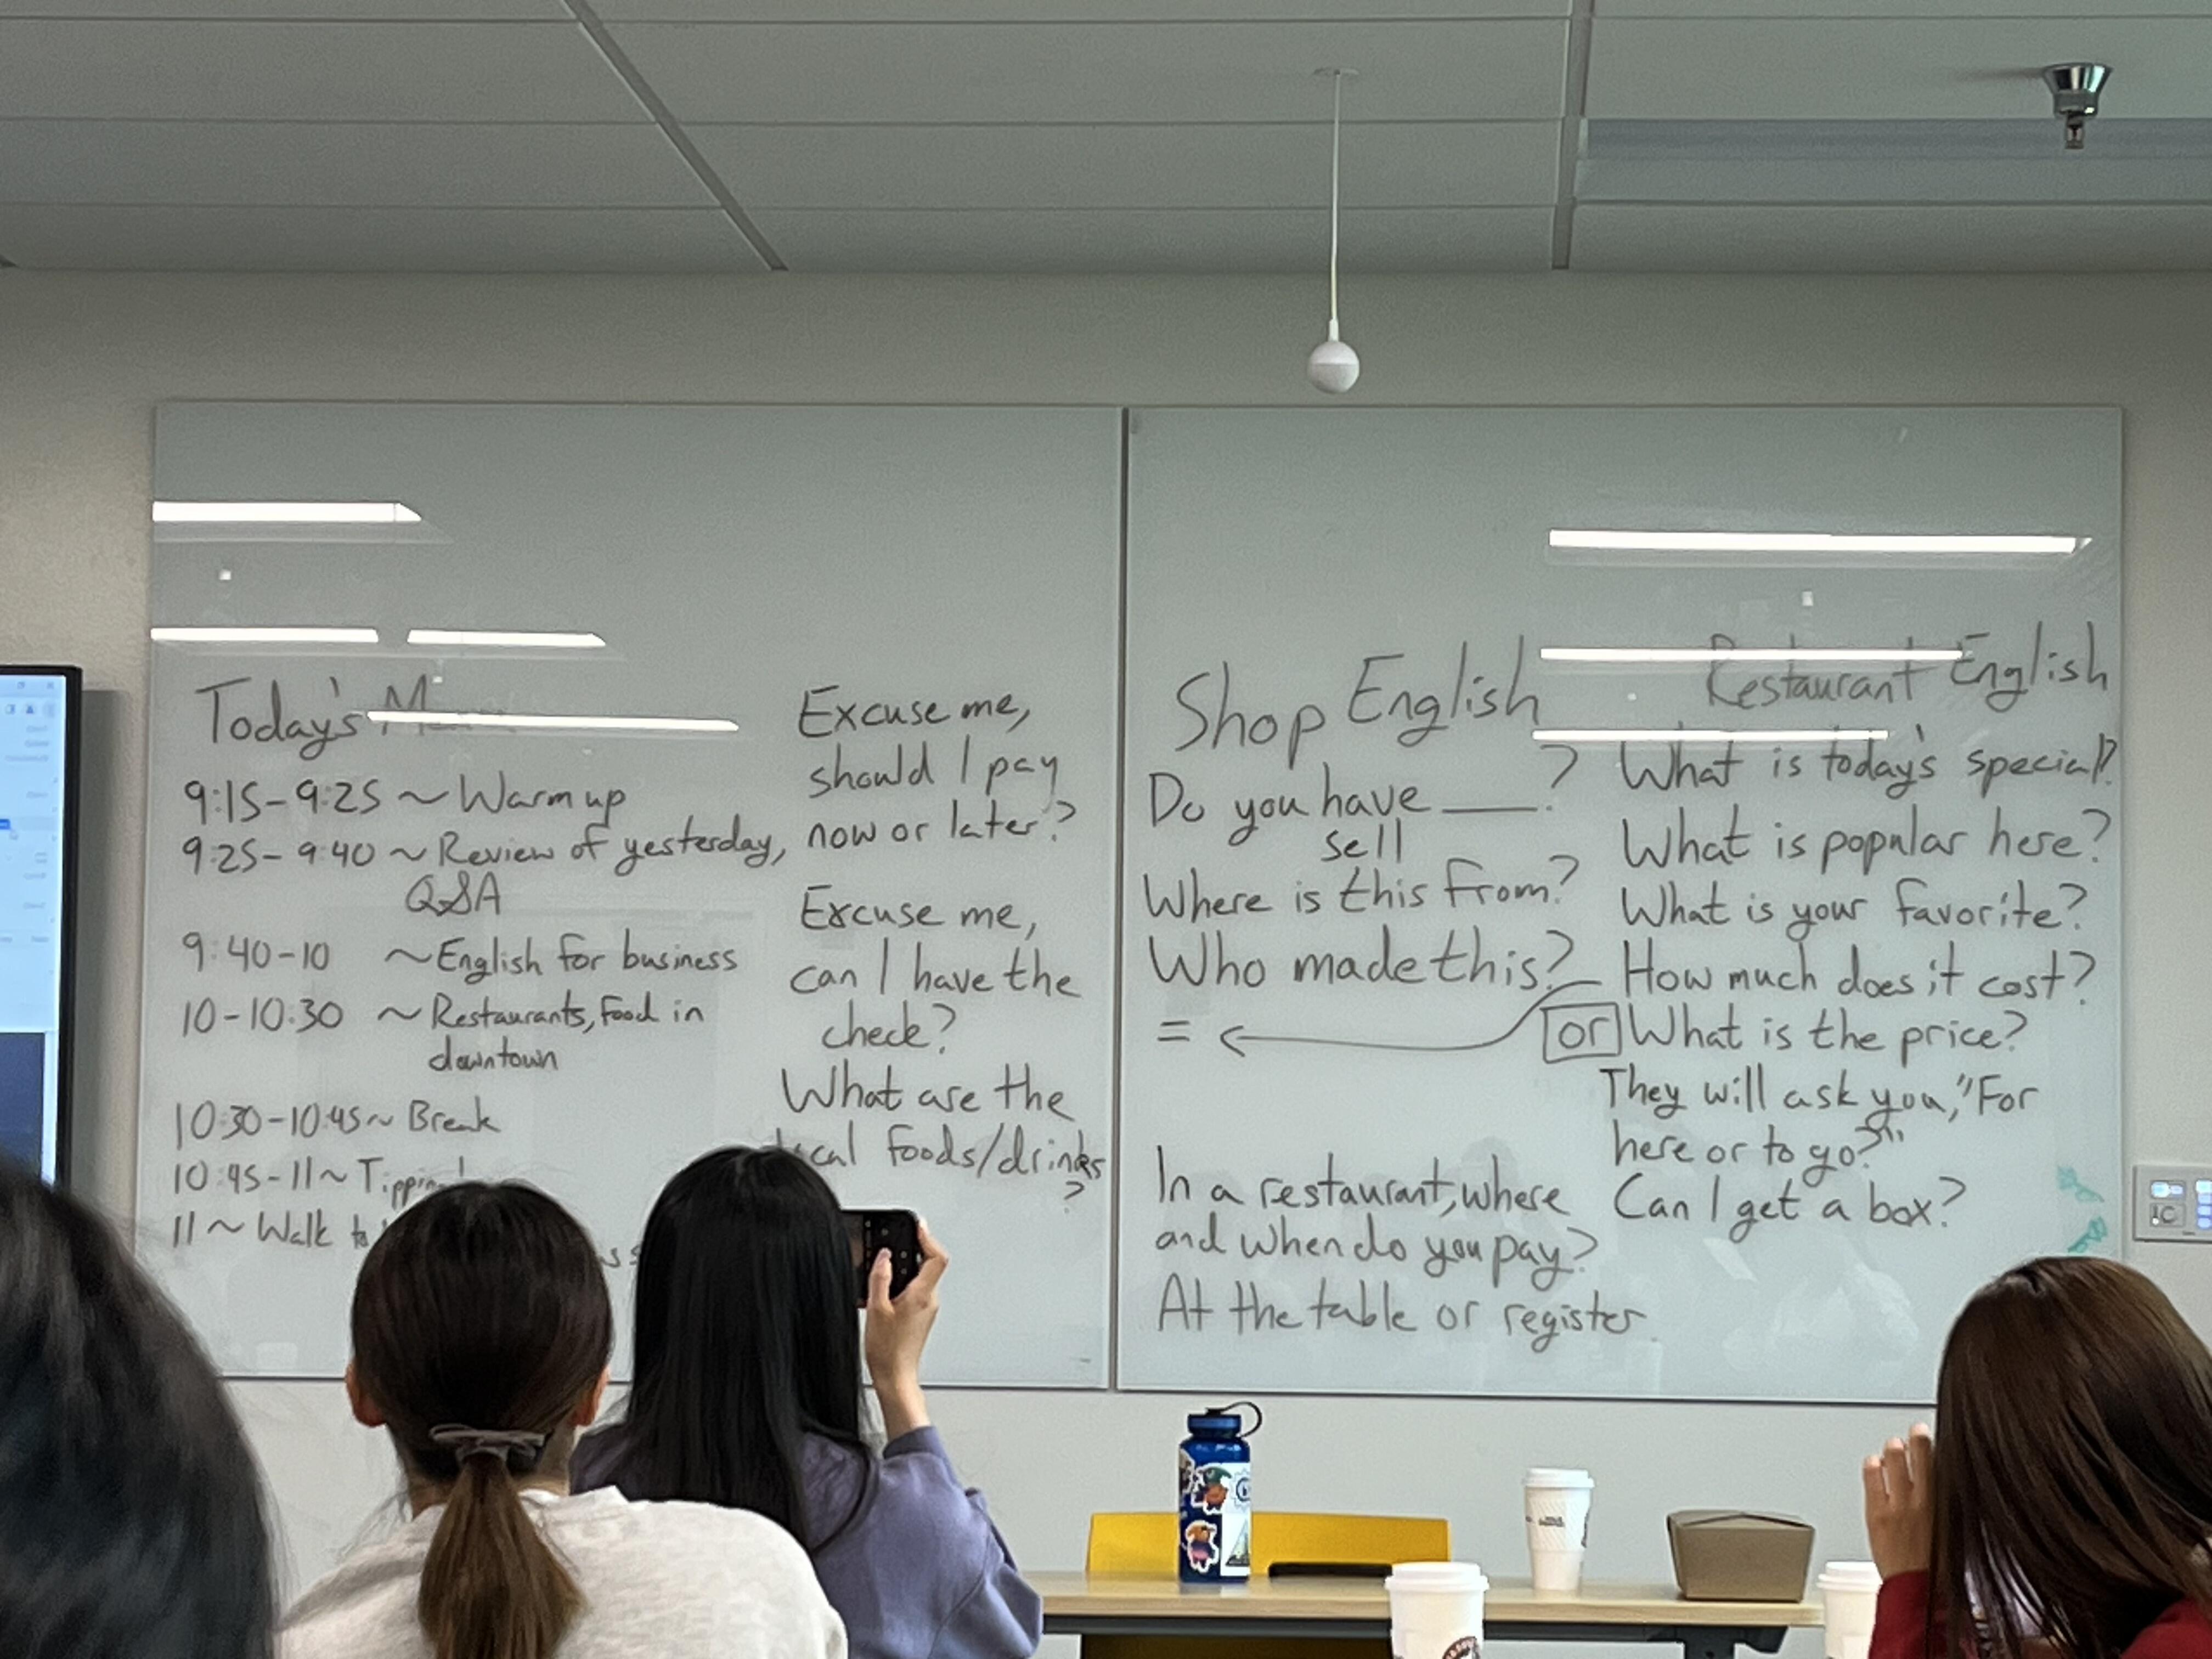 Today's
9:15-9:25 ~ Warm up
9:25-9:40 ~ Review of yesterday,
Q&A
9:40-10 ~ English for business
10-10:30 ~ Restaurants, food in
downtown
10:30-10:45 ~ Break
10:45-11 ~
11 ~ Walk to
Excuse me,
should I pay
now or later?
Excuse me,
can I have the
check?
What are the
foods/drinks
?
Shop English
Do you have ____?
sell
Where is this from?
Who made this?
= ←
In a restaurant, where
and when do you pay?
At the table or register
Restaurant English
? What is today's special?
What is popular here?
What is your favorite?
How much does it cost?
or What is the price?
They will ask you, "For
here or to go?"
Can I get a box?